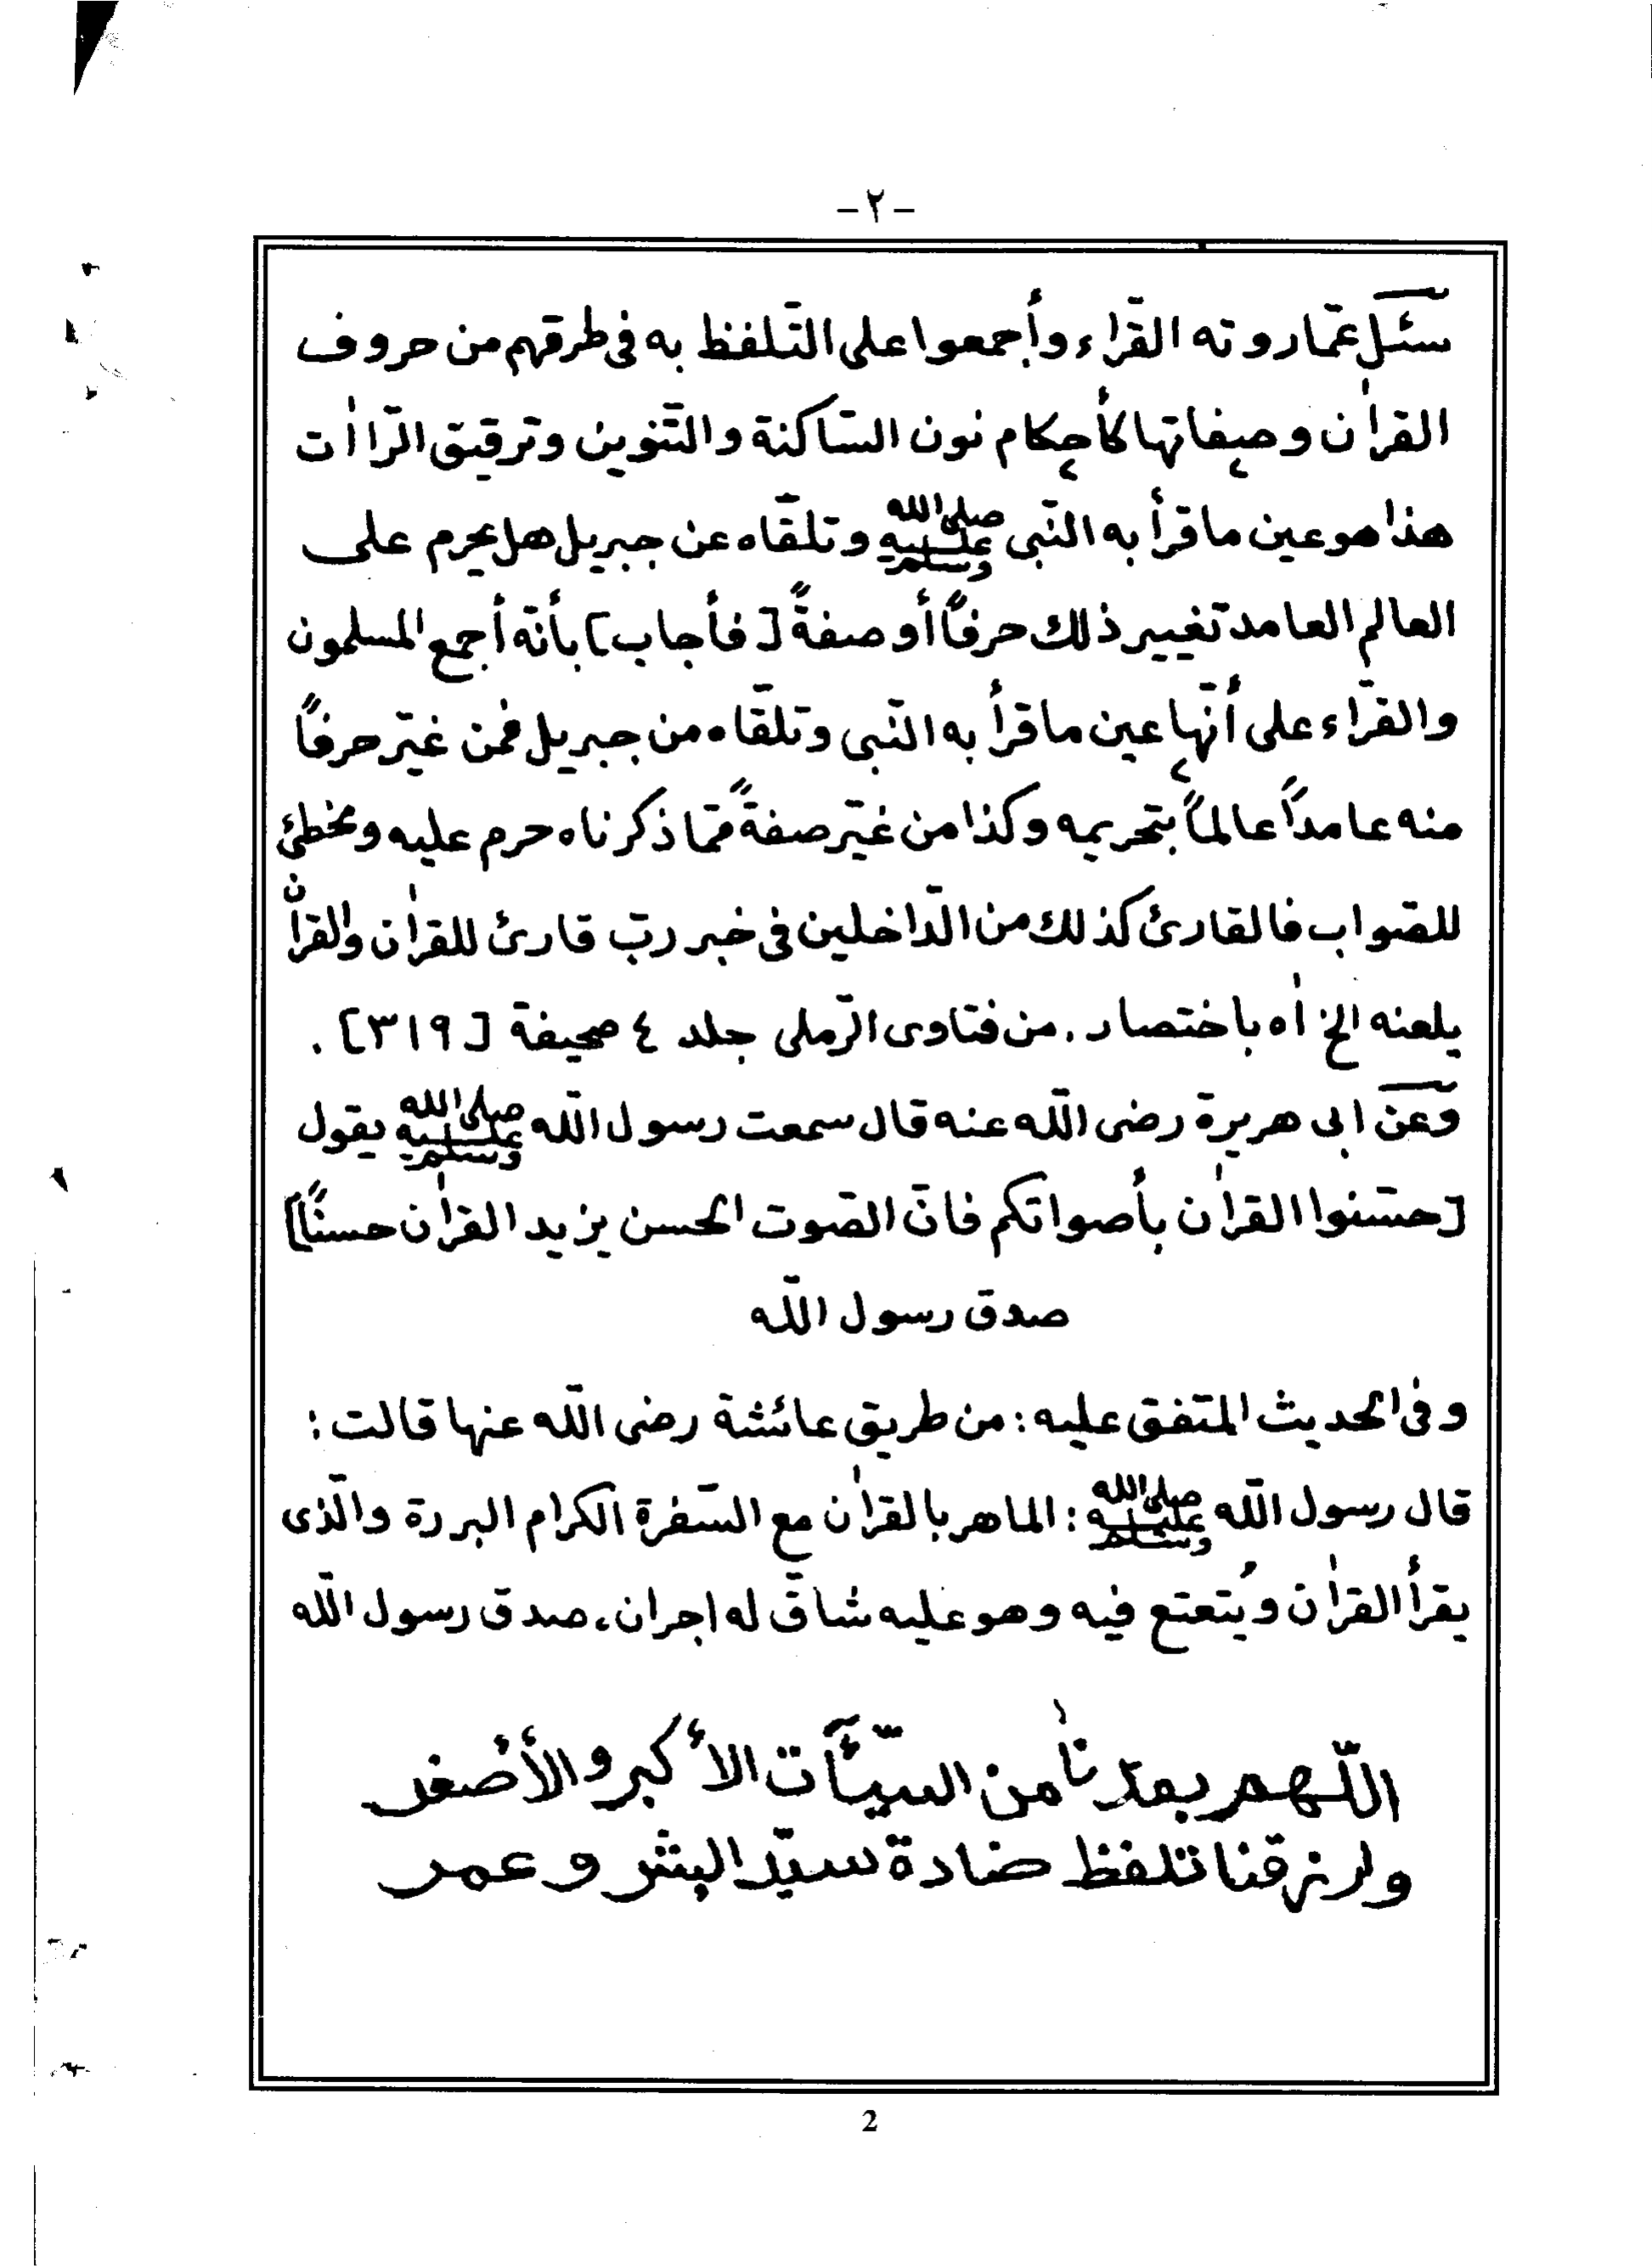 -٢-
سئل عمّا روته القرّاء وأجمعوا على التّلفظ به فى طرقهم من حروف
القراٰن وصفاتها كأحكام نون السّاكنة والتّنوين وترقيق الرّاات
هذا هو عين ما قرأ به النّبى صلى الله عليه وسلم وتلقّاه عن جبريل هل يحرم على
العالم العامد تغيير ذلك حرفًا أو صفةً [فأجاب] بأنّه أجمع المسلمون
والقرّاء على أنّها عين ما قرأ به النّبى وتلقّاه من جبريل فمن غيّر حرفًا
منه عامدًا عالمًا بتحريمه وكذا من غيّر صفةً ممّا ذكرناه حرم عليه ومخطئ
للصّواب فالقارئ كذلك من الدّاخلين فى خبر ربّ قارئ للقراٰن والقراٰن
يلعنه الخ اٰه باختصار. من فتاوى الرّملى جلد ٤ صحيفة [٣١٩].
وعن ابى هريرة رضى اللّه عنه قال سمعت رسول اللّه صلى الله عليه وسلم يقول
[حسّنوا القراٰن بأصواتكم فانّ الصّوت الحسن يزيد القراٰن حسنًا]
صدق رسول اللّه
وفى الحديث المتفق عليه: من طريق عائشة رضى اللّه عنها قالت:
قال رسول اللّه صلى الله عليه وسلم: الماهر بالقراٰن مع السّفرة الكرام البررة والّذى
يقرأ القراٰن ويُتعتع فيه وهو عليه شاقّ له اجران، صدق رسول اللّه
اللّهم بعدنا من السيّآت الأكبر والأصغر
وارزقنا تلفظ ضادة سيّد البشر وعمر
2